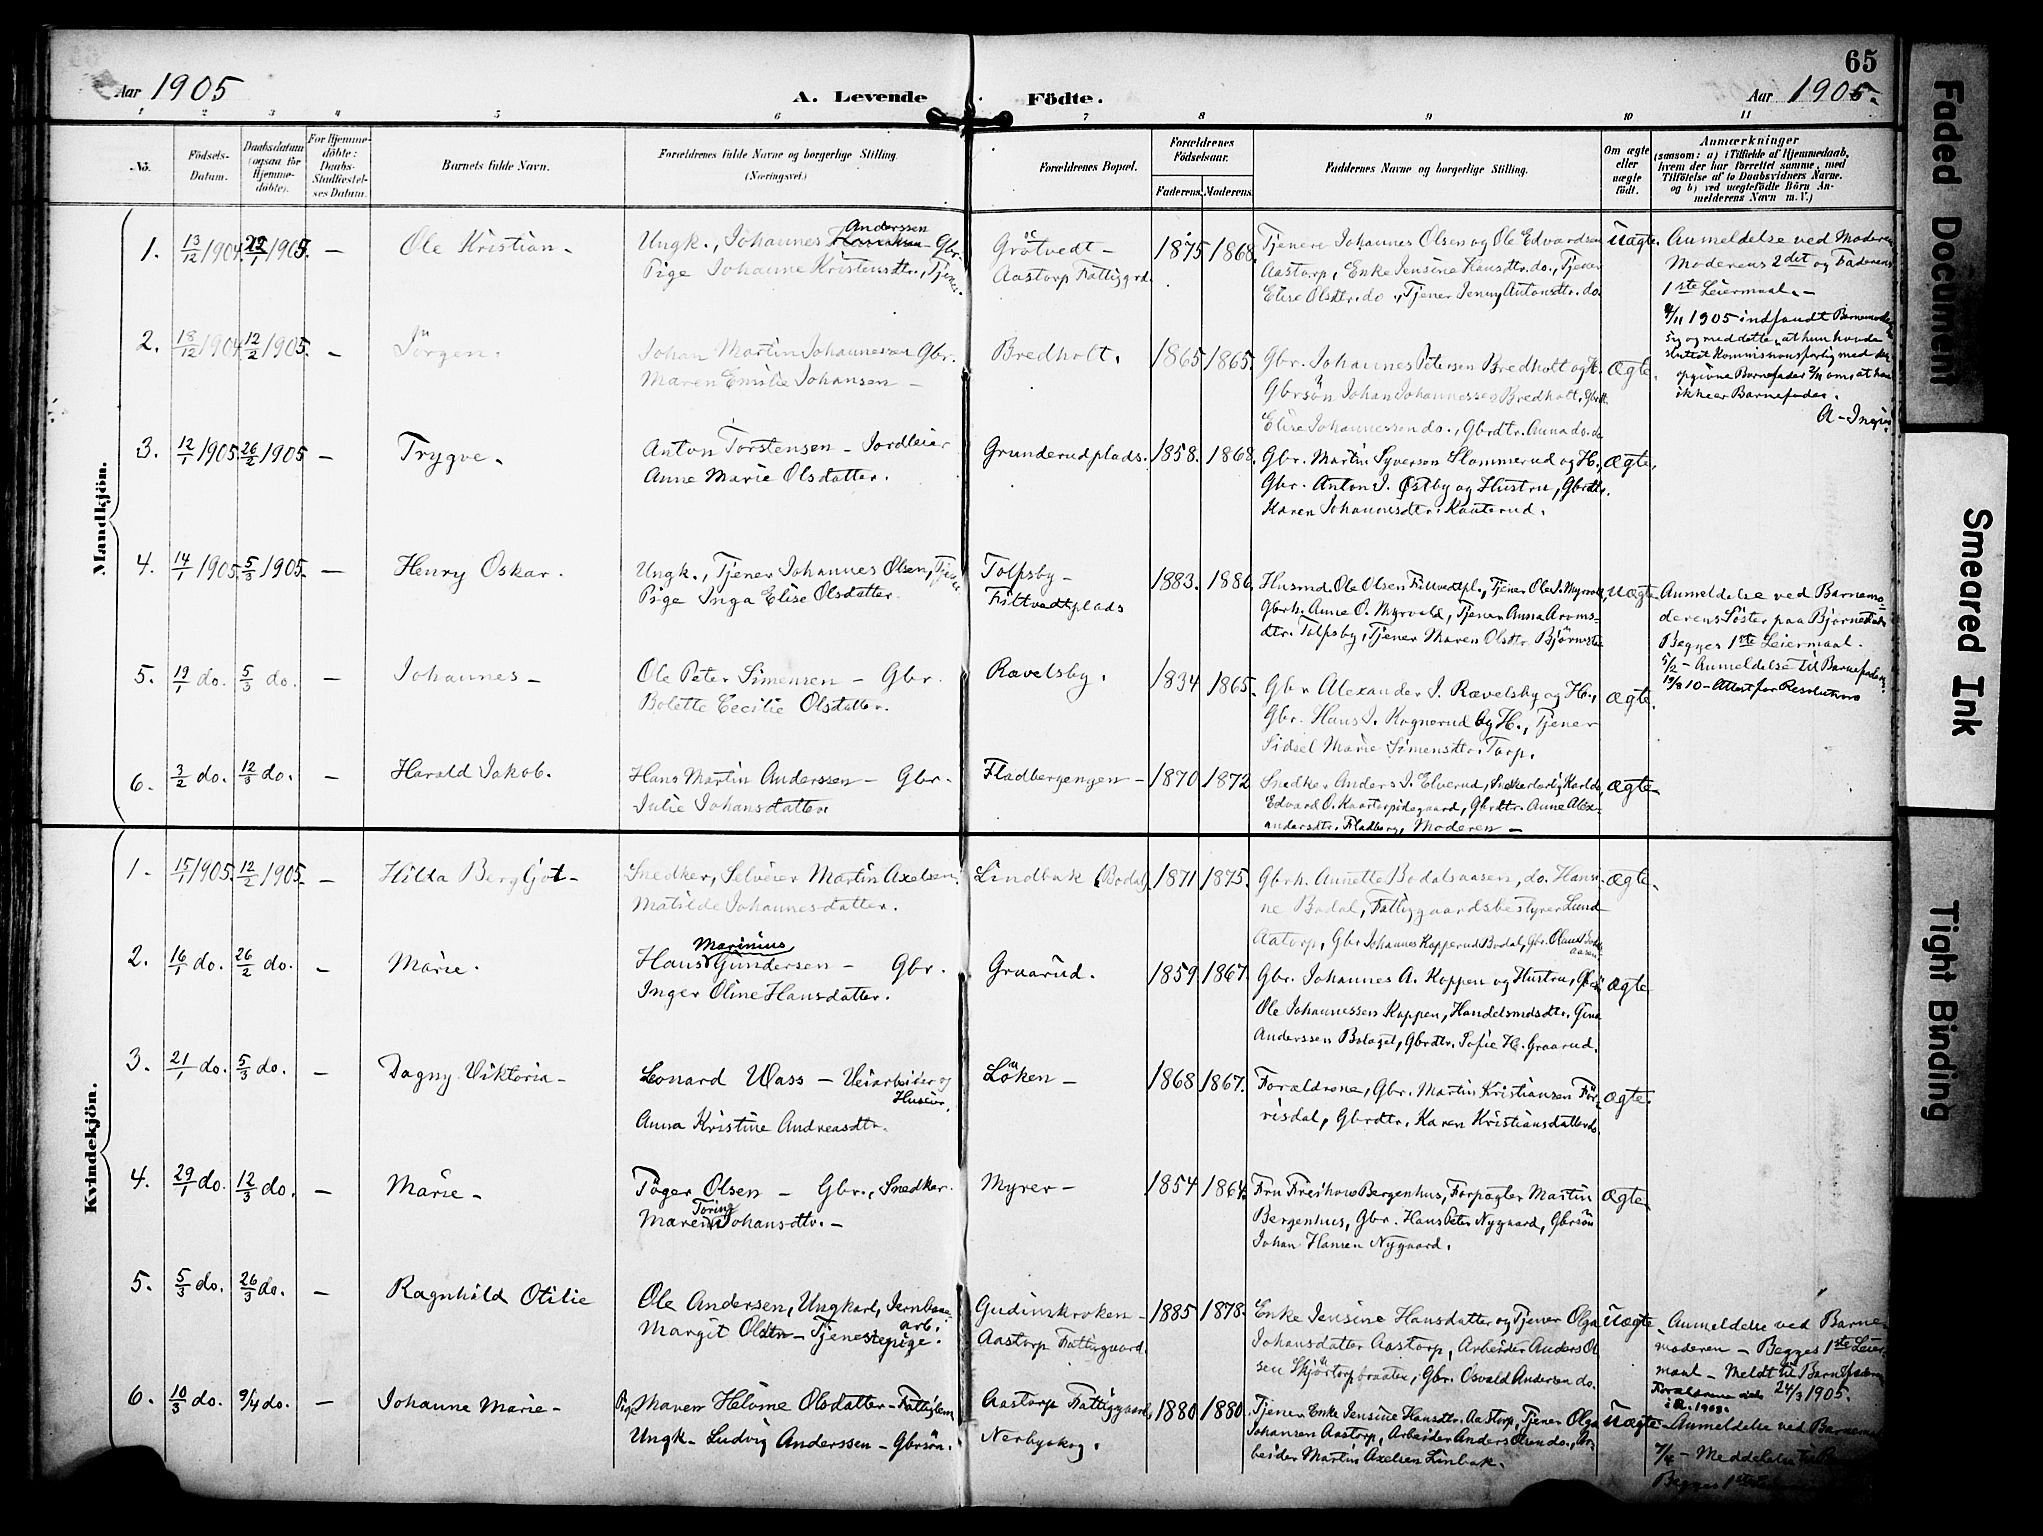 65
Aar 1905
A. Levende Födte.
Aar 1905.
1 2 3 4 5 6 7 8 9 10 11
No.
Födsels-
Datum.
Daabsdatum
(ogsaa for
Hjemme-
döbte).
For Hjemme-
döbte:
Daabs-
Stadfæstel-
ses Datum.
Barnets fulde Navn.
Forældrenes fulde Navne og borgerlige Stilling.
(Næringsvei.)
Forældrenes Bopæl.
Forældrenes
Födselsaar.
Faderens. Moderens.
Faddernes Navne og borgerlige Stilling.
Om ægte
eller
uægte
født.
Anmærkninger
(saasom: a) i Tilfælde af Hjemmedaab,
hvem der har forrettet samme, med
Tilføielse af to Daabsvidners Navne,
og b) ved uægtefödte Börn An-
melderens Navn m. V.)
Mandkjön.
1. 13/12 1904. 1905. — Ole Kristian —
Anderssen
Ungk., Johannes — Gbr.
Pige Johanne Kristensdtr., Tjenes.
Grötvedt —
Aastorp Fattiggrd.
1875 1868.
Tjenere Johannes Olsen og Ole Edvardsen
Aastorp, Enke Jensine Hansdtr. do., Tjener
Elise Olsdtr. do., Tjener Jenny Antonsdtr. do.
Uægte.
Anmeldelse ved Moderen
Moderens 2det og Faderens
1ste Leiermaal. —
1905 indfandt Barnemoder
sig og meddelte, at hun havde
sluttet Kommissionsforlig med den
opgivne Barnefader om at han
ikke er Barnefader.
2. 18/12 1904. 12/2 1905. — Jörgen.
Johan Martin Johannessen Gbr.
Maren Emilie Johansen —
Bredholt.
1865 1865.
Gbr. Johannes Petersen Bredholt og H.
Gbrsön Johan Johannessen Bredholt, Gbrdtr.
Elise Johannessen do., Gbrdtr. Anna do. do
Ægte.
3. 12/1 1905. 26/2 1905 — Trygve.
Anton Torstensen — Jordleier
Anne Marie Olsdatter.
Grunderudplads.
1858. 1868.
Gbr. Martin Syversen Slommerud og H.,
Gbr. Anton J. Østby og Hustru, Gbrdtr.
Karen Johannesdtr. Kauterud.
Ægte.
4. 14/1 1905. 5/3 1905. — Henry Oskar.
Ungk., Tjener Johannes Olsen, Tjener
Pige Inga Elise Olsdatter.
Tolpsby —
Fittvedtplads
1883. 1886.
Husmd. Ole Olsen Fittvedtpl., Tjener Ole J. Myrvold,
Gbrk. Anne O. Myrvold, Tjener Anna Arons-
dtr. Tolpsby, Tjener Maren Olsdtr. Björnsta
Uægte.
Anmeldelse ved Barnemo-
derens Söster paa Bjørnstad
Begges 1ste Leiermaal.
5/2 — Anmeldelse til Barnefaderen.
19/8 10 — Attest for Resolution
5. 19/1 do. 5/3 do. — Johannes —
Ole Peter Simensen — Gbr.
Bolette Cecilie Olsdatter.
Rævelsby.
1834 1865.
Gbr. Alexander J. Rævelsby og H.,
Gbr. Hans J. Kognerud og H., Tjener
Sidsel Marie Simensdtr. Torp.
Ægte.
6. 3/2 do. 12/3 do. — Harald Jakob.
Hans Martin Anderssen — Gbr.
Julie Johansdatter.
Fladbergengen —
1870 1872
Snedker Anders J. Elverud,
Edvard O. Kaatorpødegaard, Gbrdtr. Anne Alex-
andersdtr. Fladberg, Moderen —
Ægte.
Kvindekjön.
1. 15/1 1905. 12/2 1905. — Hilda Bergljot —
Snedker, Selveier Martin Axelsen.
Matilde Johannesdatter.
Lindbak (Bodal).
1871 1875.
Gbrk. Annette Bodalsaasen, do. Hansi-
ne Bodal, Fattiggaardsbestyrer Lund
Aatorp, Gbr. Johannes Kopperud Bodal, Gbr. Olaus Bodals-
aasen
Ægte.
2. 16/1 do. 26/2 do. — Marie.
Marinius
Hans Gundersen — Gbr.
Inger Oline Hansdatter.
Graarud.
1859 1867.
Gbr. Johannes A. Koppen og Hustru, Gbrsön
Ole Johannessen Koppen, Handelsmdsdtr. Gina
Anderssen Bolaget, Gbrdtr. Sofie H. Graarud.
Ægte
3. 21/1 do. 5/3 do. — Dagny Viktoria —
Leonard Wass — Veiarbeider og
Huseier.
Anna Kristine Andreasdtr.
Löken —
1868 1867.
Forældrene, Gbr. Martin Kristiansen För-
risdal, Gbrdtr. Karen Kristiansdatter do.
Ægte.
4. 29/1 do. 12/3 do. — Marie —
Töger Olsen — Gbr., Snedker.
Toring
Maren Johansdtr. —
Myrer —
1854 1864.
Fru Freihow Bergenhus, Forpagter Martin
Bergenhus, Gbr. Hans Peter Nygaard, Gbrsön
Johan Hansen Nygaard.
Ægte
5. 5/3 do. 26/3 do. — Ragnhild Otilie
Ole Andersen, Ungkarl, Jernbane-
arb.
Margit Olsdtr — Tjenestepige.
Gudimkroken —
Aastorp Fattiggaard.
1885 1878.
Enke Jensine Hansdatter og Tjener Olga
Johansdatter Aastorp, Arbeider Anders Ol-
sen Skjörtorpbraaten, Gbr. Osvald Andersen do.
Uægte
Anmeldelse ved Barne-
moderen — Begges 1ste Leier-
maal — Meldt til Barnefaderen
24/3 1905.
Forældrene viet
6. 10/3 do. 9/4 do. — Johanne Marie —
Pige Maren Helvine Olsdatter — Fattiglem
Ungk. Ludvig Anderssen — Gbrsön.
Aastorp Fattiggaard,
Nerbyskog.
1880 1880.
Tjener Enke Jensine Hansdtr. Aastorp, Tjener Olga
Johansen Aastorp, Arbeider Anders Olsen do., Ar-
beider Martin Axelsen Linbak.
Uægte
Anmeldelse ved Barnemo
7/4 — Meddelelse til
Begges 1ste
Faded Document
Smeared Ink
Tight Binding